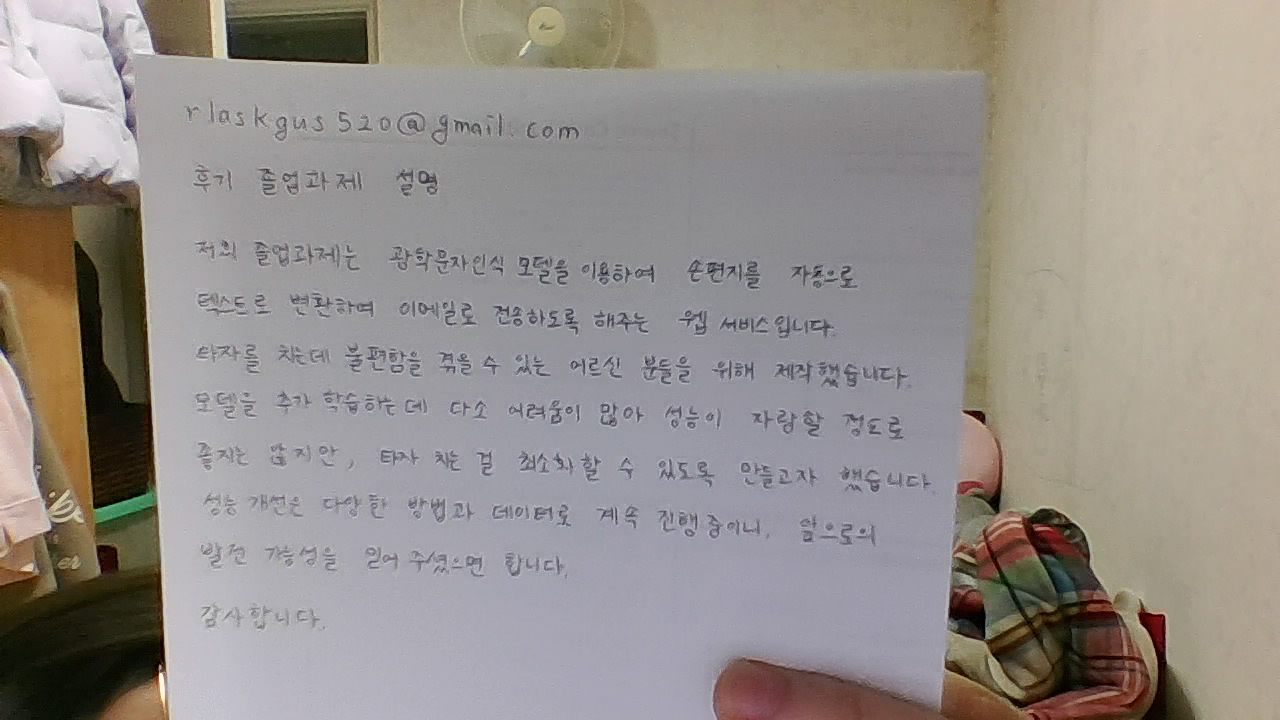 rlaskgus520@gmail.com
후기 졸업과제 설명
저희 졸업과제는 광학문자인식 모델을 이용하여 손편지를 자동으로
텍스트로 변환하여 이메일로 전송하도록 해주는 웹 서비스입니다.
타자를 치는데 불편함을 겪을 수 있는 어르신 분들을 위해 제작했습니다.
모델을 추가 학습하는데 다소 어려움이 많아 성능이 자랑할 정도로
좋지는 않지만, 타자 치는 걸 최소화할 수 있도록 만들고자 했습니다.
성능 개선은 다양한 방법과 데이터로 계속 진행중이니, 앞으로의
발전 가능성을 믿어 주셨으면 합니다.
감사합니다.